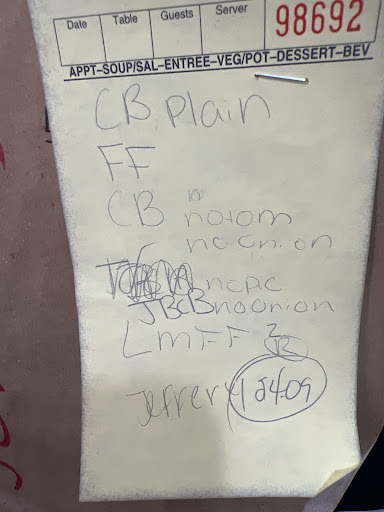 Date Table Guests Server 98692
APPT-SOUP/SAL-ENTREE-VEG/POT-DESSERT-BEV
CB plain
FF
CB notom
no onion
JBCB no onion
LmFF 2
Jeffery